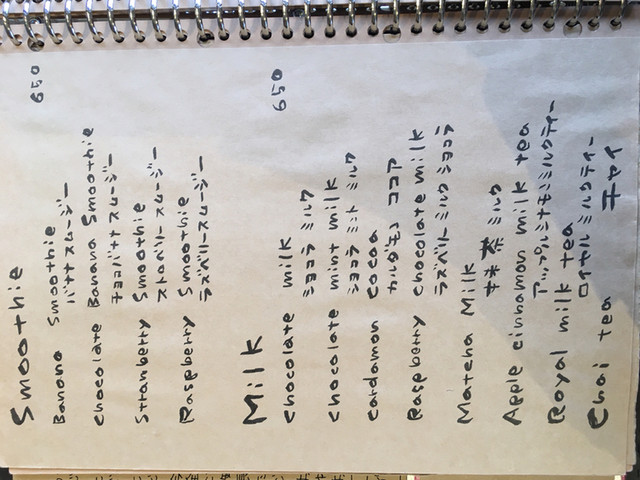 Smoothie 650
Banana Smoothie
バナナスムージー
chocolate Banana Smoothie
チョコバナナスムージー
Strawberry Smoothie
ストロベリースムージー
Raspberry Smoothie
ラズベリースムージー
Milk 650
chocolate milk
ショコラ ミルク
chocolate mint milk
ショコラ ミント ミルク
cardamon cocoa
カルダモン ココア
Raspberry chocolate milk
ラズベリー ミルク ショコラ
Matcha Milk
抹茶 ミルク
Apple cinnamon milk tea
アップルシナモンミルクティー
Royal milk tea
ロイヤルミルクティー
Chai tea チャイ